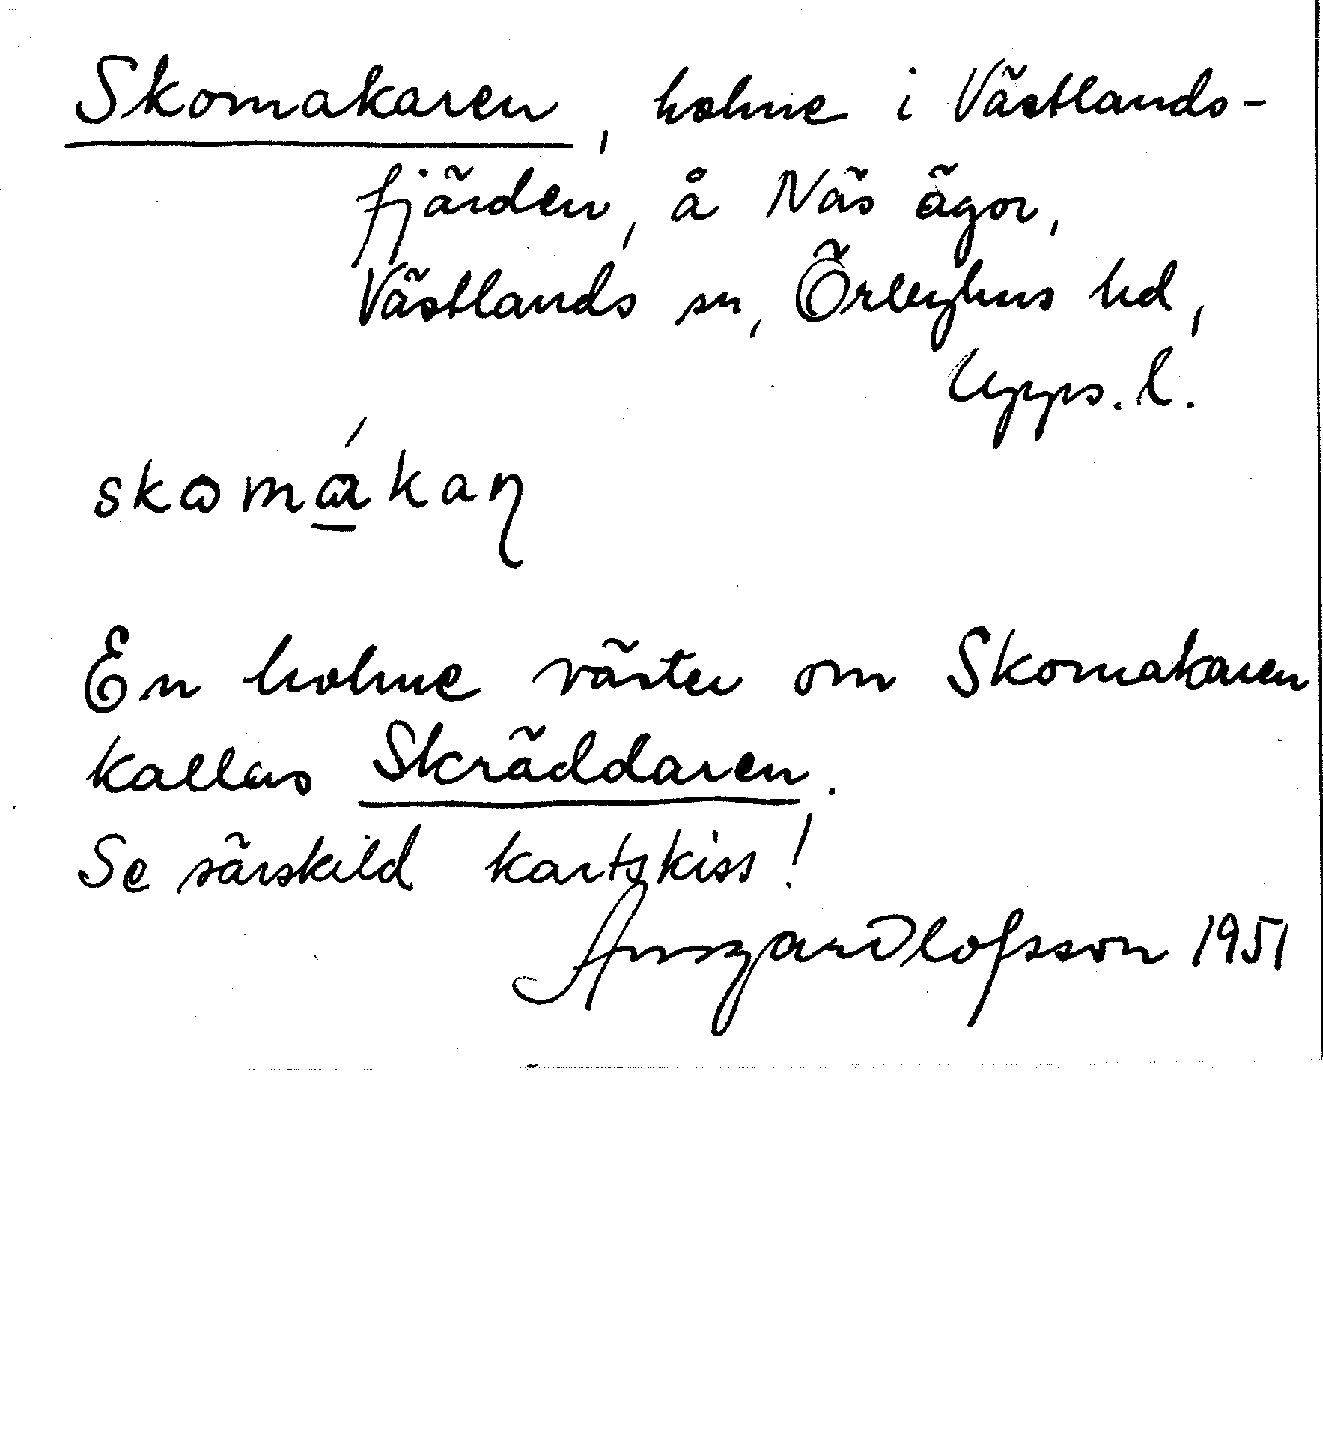 Skomakaren, holme i Västlands-
fjärden, å Näs ägor,
Västlands sn, Örbyhus hd,
Upps. l.
En holme väster om Skomakaren
kallas Skräddaren.
Se särskild kartskiss!
Ansgar Olofsson 1951